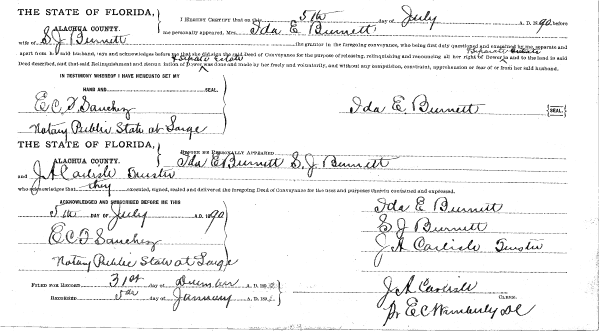 THE STATE OF FLORIDA,
ALACHUA COUNTY.
I HEREBY CERTIFY that on this 5th day of July A. D. 1890, before
me personally appeared, Mrs. Ida E. Burnett
wife of S J Burnett the grantor in the foregoing conveyance, who being first duly questioned and examined by me, separate and
apart from her said husband, says and acknowledges before me that she did sign the said Deed of Conveyance for the purpose of releasing, relinquishing and renouncing all her right of Dower in and to the land in said
& Separate Estate
Deed described, and that said Relinquishment and Renunciation of Dower was done and made by her freely and voluntarily, and without any compulsion, constraint, apprehension or fear of or from her said husband.
IN TESTIMONY WHEREOF I HAVE HEREUNTO SET MY
HAND AND SEAL.
E. C. F. Sanchez Ida E. Burnett {SEAL}
Notary Public State at Large
THE STATE OF FLORIDA,
ALACHUA COUNTY.
BEFORE ME PERSONALLY APPEARED Ida E Burnett S. J. Burnett
and J A Carlisle Trustee
who acknowledge that they executed, signed, sealed and deliver the foregoing Deed of Conveyance for the uses and purposes therein contained and expressed.
ACKNOWLEDGED AND SUBSCRIBED BEFORE ME THIS Ida E Burnett
5th DAY OF July A.D. 1890 S J Burnett
E C F Sanchez J A Carlisle Trustee
Notary Public State at Large
FILED FOR RECORD 31st day of December A. D. 1890 J A Carlisle CLERK.
RECORDED day of January A. D. 189 Pr E C Wamberly DC